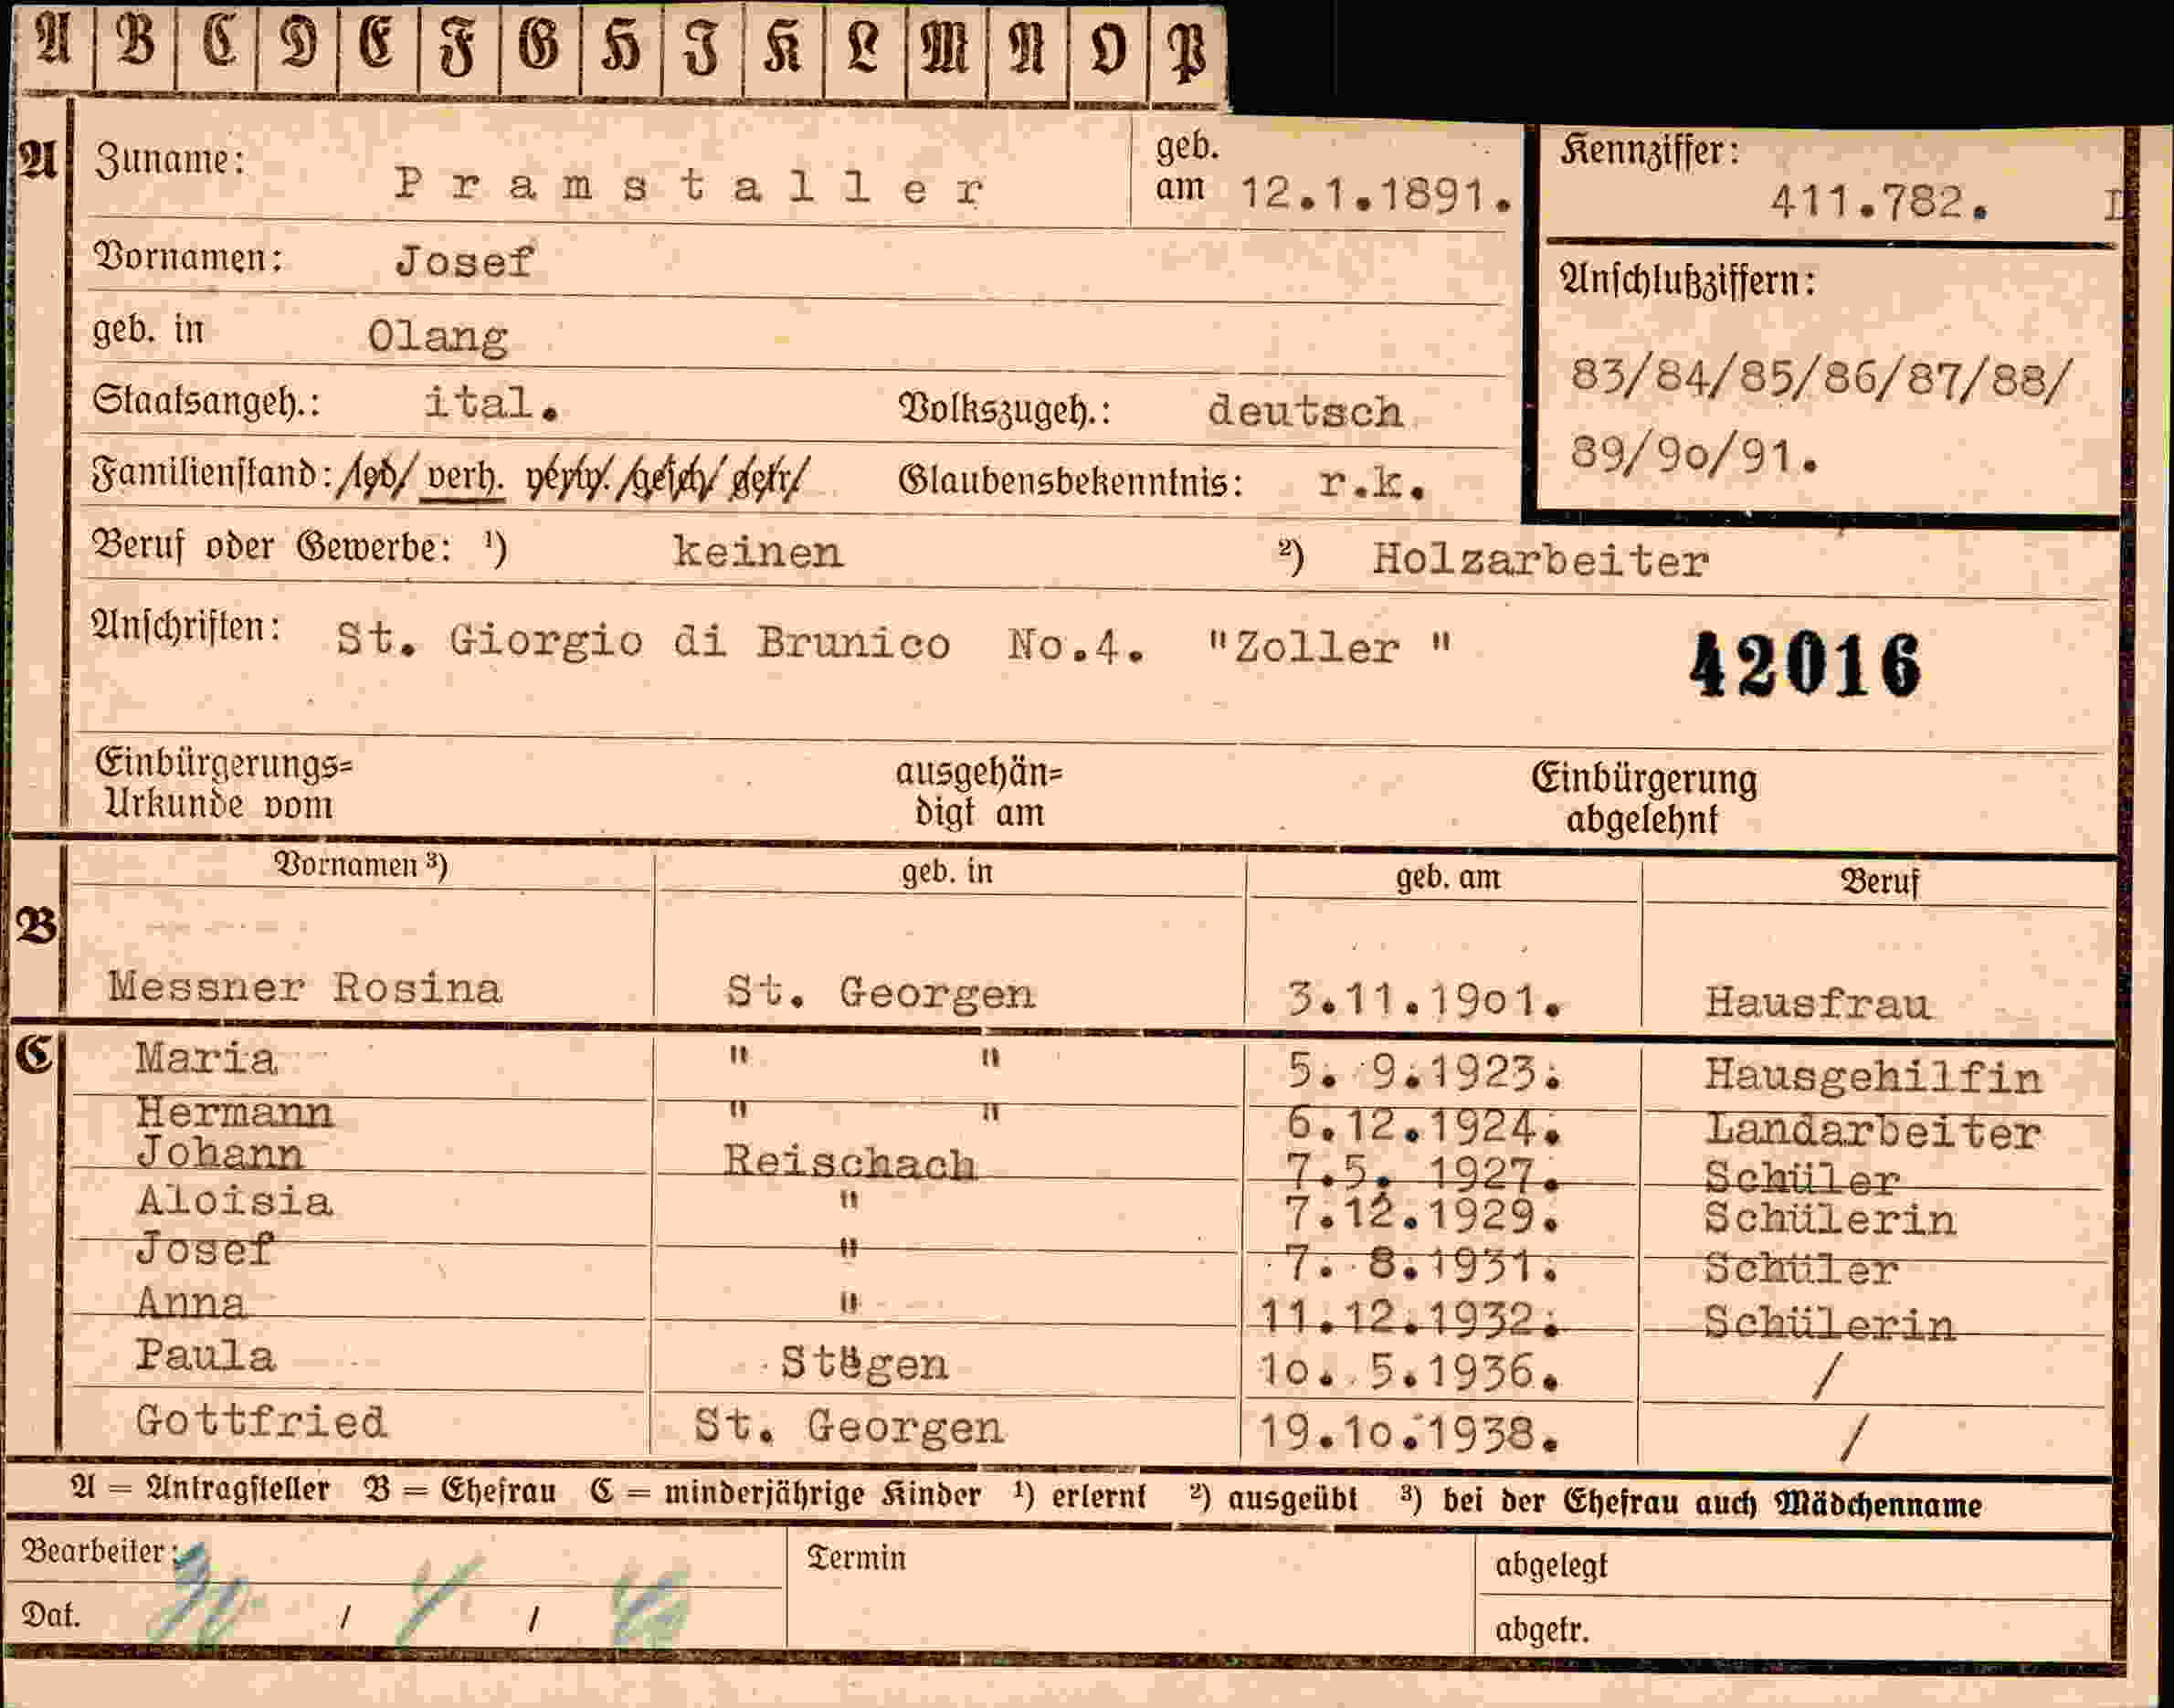 A B C D E F G H I K L M N O P
A Zuname: Pramstaller geb. am 12.1.1891. Kennziffer: 411.782.
Vornamen: Josef
Anschlußziffern:
geb. in Olang
83/84/85/86/87/88/
Staatsangeh.: ital. Volkszugeh.: deutsch
89/90/91.
Familienstand: led. verh. verw. gesch. getr. Glaubensbekenntnis: r.k.
Beruf oder Gewerbe: ¹) keinen ²) Holzarbeiter
Anschriften: St. Giorgio di Brunico No.4. "Zoller " 42016
Einbürgerungs= ausgehän= Einbürgerung
Urkunde vom digt am abgelehnt
Vornamen ³) geb. in geb. am Beruf
B
Messner Rosina St. Georgen 3.11.1901. Hausfrau
C Maria " " 5. 9.1923. Hausgehilfin
Hermann " " 6.12.1924. Landarbeiter
Johann Reischach 7.5. 1927. Schüler
Aloisia " 7.12.1929. Schülerin
Josef " 7. 8.1931. Schüler
Anna " 11.12.1932. Schülerin
Paula Stegen 10. 5.1936. /
Gottfried St. Georgen 19.10.1938. /
A = Antragsteller B = Ehefrau C = minderjährige Kinder ¹) erlernt ²) ausgeübt ³) bei der Ehefrau auch Mädchenname
Bearbeiter: Termin abgelegt
Dat. / / abgetr.